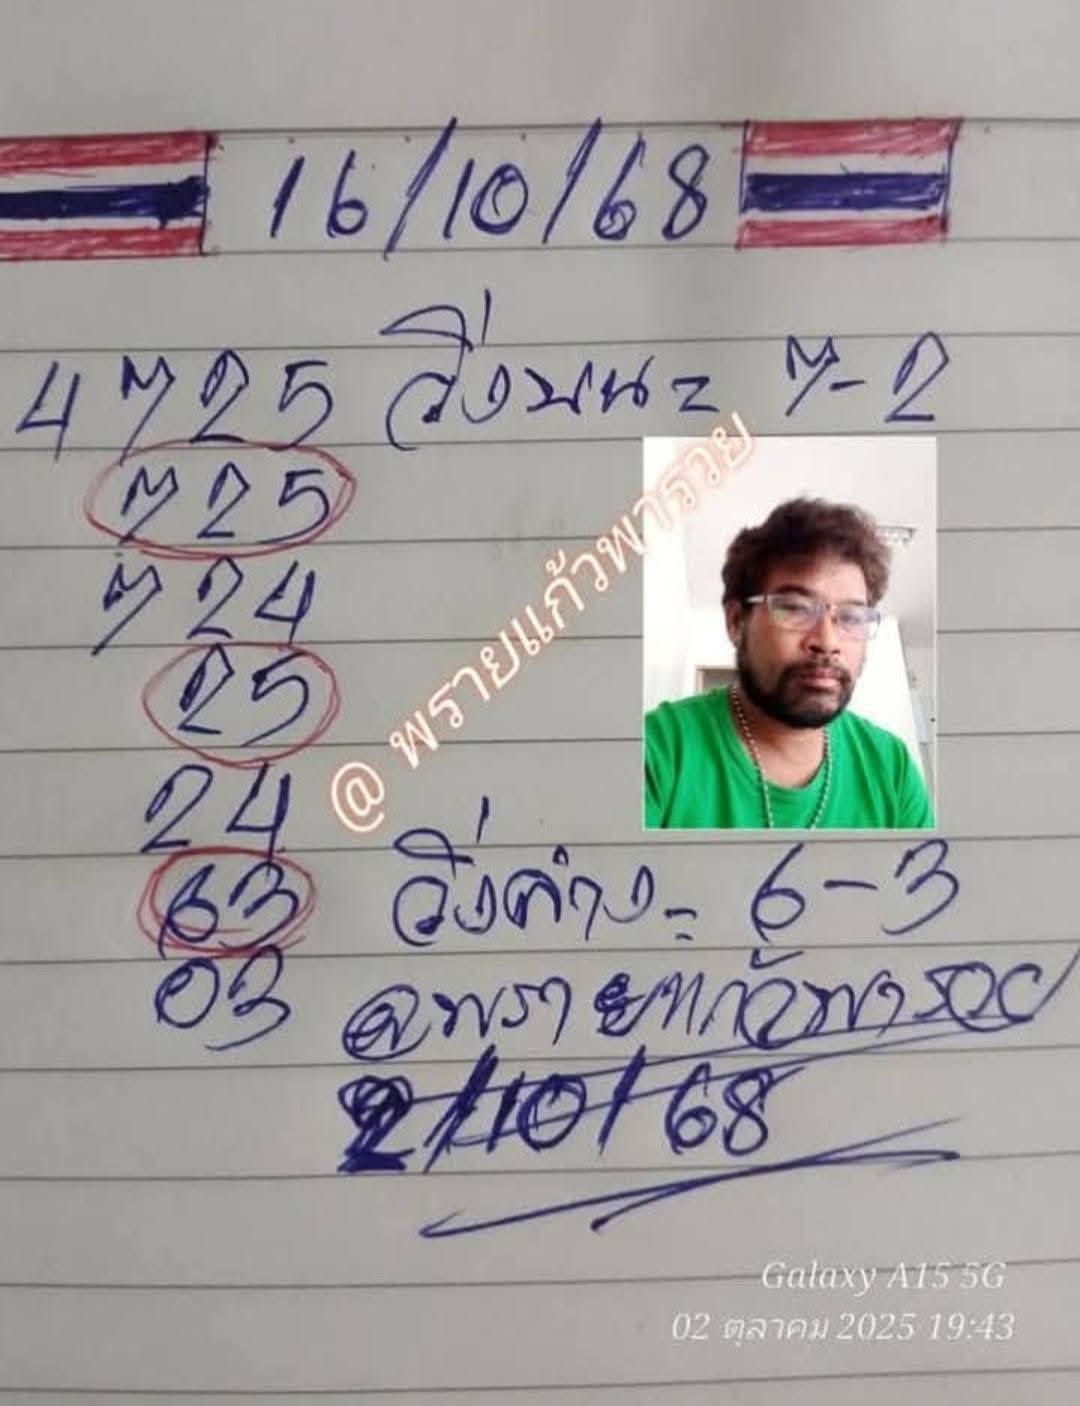 16/10/68
4725 วิ่งบน= 7-2
725
724
25
@ พรายแก้วพารวย
24
63 วิ่งล่าง= 6-3
03 @พรายแก้วพารวย
2/10/68
Galaxy A15 5G
02 ตุลาคม 2025 19:43